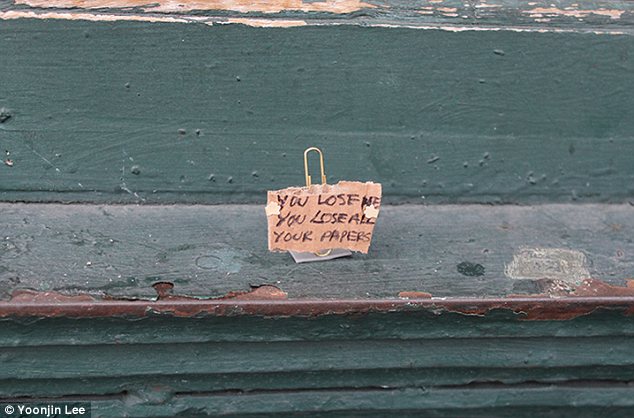 YOU LOSE ME
YOU LOSE ALL
YOUR PAPERS
© Yoonjin Lee